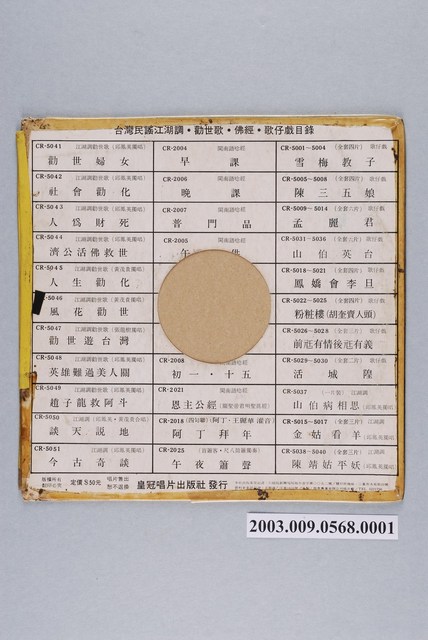 台灣民謠江湖調・勸世歌・佛經・歌仔戲目錄
CR-5041 江湖調勸世歌 (邱鳳英獨唱)
勸世婦女
CR-5042 江湖調勸世歌 (邱鳳英獨唱)
社會勸化
CR-5043 江湖調勸世歌 (邱鳳英獨唱)
人為財死
CR-5044 江湖調勸世歌 (邱鳳英獨唱)
濟公活佛救世
CR-5045 江湖調勸世歌 (黃茂良獨唱)
人生勸化
5046 江湖調勸世歌 (黃茂良獨唱)
風花勸世
CR-5047 江湖調勸世歌
勸世遊台灣
CR-5048 江湖調勸世歌 (邱鳳英獨唱)
英雄難過美人關
CR-5049 江湖調 (邱鳳英獨唱)
趙子龍救阿斗
CR-5050 江湖調
談天説地
CR-5051 江湖調 (邱鳳英獨唱)
今古奇談
CR-2004 閩南語唸經
早課
CR-2006 閩南語唸經
晚課
CR-2007 閩南語唸經
普門品
CR-2005 閩南語唸經
CR-2008 閩南語唸經
初一・十五
CR-2021 閩南語唸經
恩主公經
CR-2018
阿丁拜年
CR-2025
午夜簫聲
CR-5001~5004 (全套四片) 歌仔戲
雪梅教子
CR-5005~5008 (全套四片) 歌仔戲
陳三五娘
CR-5009~5014 (全套六片) 歌仔戲
孟麗君
CR-5031~5036 (全套六片) 歌仔戲
山伯英台
CR-5018~5021 (全套四片) 歌仔戲
鳳嬌會李旦
CR-5022~5025 (全套四片) 歌仔戲
粉粧樓(胡奎賣人頭)
CR-5026~5028 (全套三片) 歌仔戲
前尫有情後尫有義
CR-5029~5030 (全套二片) 歌仔戲
活城隍
CR-5037 (一片裝) 江湖調
山伯病相思 (邱鳳英獨唱)
CR-5015~5017 (全套三片) 江湖調
金姑看羊
CR-5038~5040 (全套三片) 江湖調
陳靖姑平妖
版權所有
翻印必究
定價S50元
唱片售出
恕不退換
皇冠唱片出版社 發行
2003.009.0568.0001